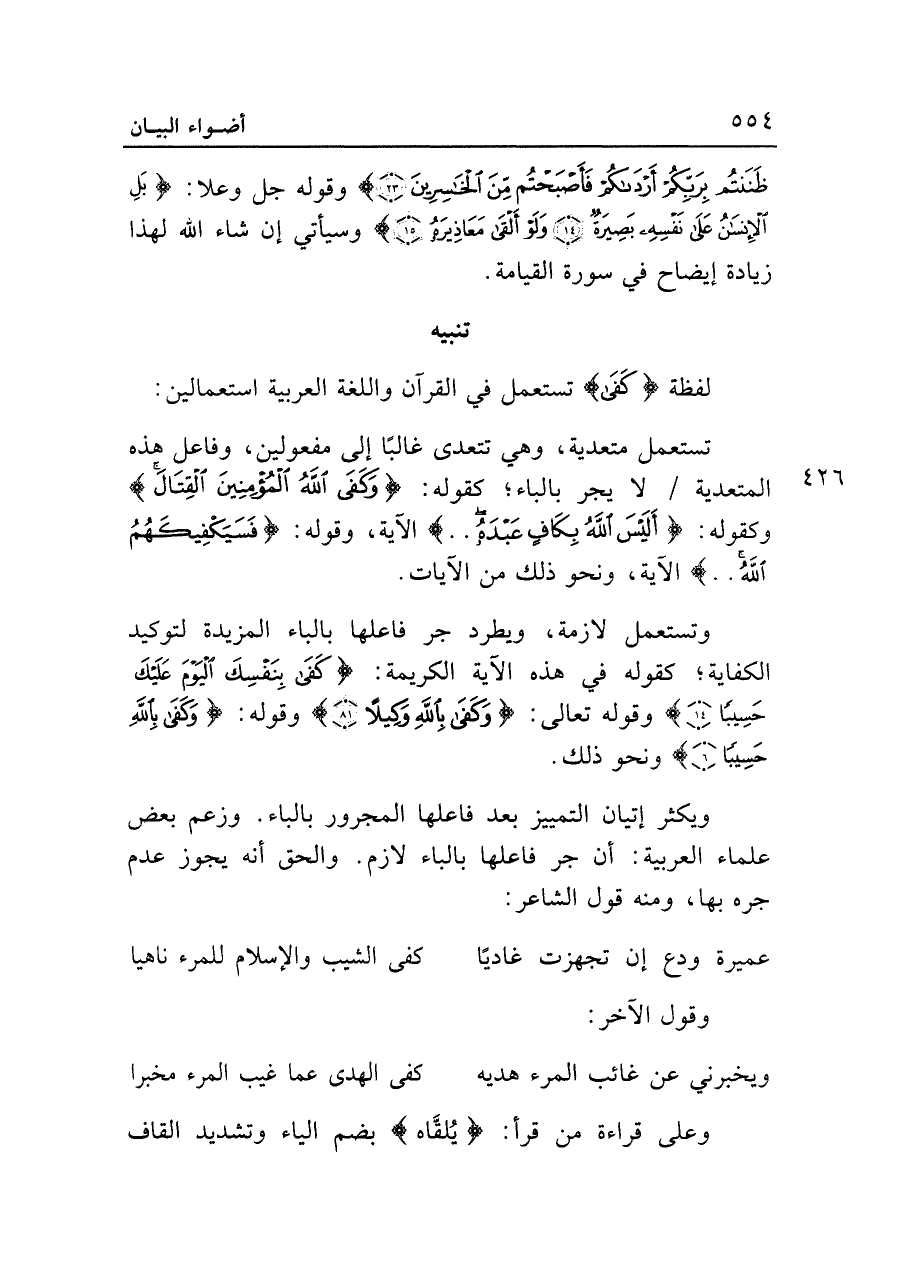 ٥٥٤ أضـواء البيـان
ظَنَنتُم بِرَبِّكُمْ أَرْدَىٰكُمْ فَأَصْبَحْتُم مِّنَ ٱلْخَٰسِرِينَ ﴿٢٣﴾﴾ وقوله جل وعلا: ﴿بَلِ
ٱلْإِنسَٰنُ عَلَىٰ نَفْسِهِۦ بَصِيرَةٌ ﴿١٤﴾ وَلَوْ أَلْقَىٰ مَعَاذِيرَهُۥ ﴿١٥﴾﴾ وسيأتي إن شاء الله لهذا
زيادة إيضاح في سورة القيامة.
تنبيه
لفظة ﴿كَفَىٰ﴾ تستعمل في القرآن واللغة العربية استعمالين:
تستعمل متعدية، وهي تتعدى غالبًا إلى مفعولين، وفاعل هذه
المتعدية / لا يجر بالباء؛ كقوله: ﴿وَكَفَى ٱللَّهُ ٱلْمُؤْمِنِينَ ٱلْقِتَالَۚ﴾ ٤٢٦
وكقوله: ﴿أَلَيْسَ ٱللَّهُ بِكَافٍ عَبْدَهُۥۖ . .﴾ الآية، وقوله: ﴿فَسَيَكْفِيكَهُمُ
ٱللَّهُۚ . .﴾ الآية، ونحو ذلك من الآيات.
وتستعمل لازمة، ويطرد جر فاعلها بالباء المزيدة لتوكيد
الكفاية؛ كقوله في هذه الآية الكريمة: ﴿كَفَىٰ بِنَفْسِكَ ٱلْيَوْمَ عَلَيْكَ
حَسِيبًا ﴿١٤﴾﴾ وقوله تعالى: ﴿وَكَفَىٰ بِٱللَّهِ وَكِيلًا ﴿٨١﴾﴾ وقوله: ﴿وَكَفَىٰ بِٱللَّهِ
حَسِيبًا ﴿٦﴾﴾ ونحو ذلك.
ويكثر إتيان التمييز بعد فاعلها المجرور بالباء. وزعم بعض
علماء العربية: أن جر فاعلها بالباء لازم. والحق أنه يجوز عدم
جره بها، ومنه قول الشاعر:
عميرة ودع إن تجهزت غاديًا كفى الشيب والإسلام للمرء ناهيا
وقول الآخر:
ويخبرني عن غائب المرء هديه كفى الهدى عما غيب المرء مخبرا
وعلى قراءة من قرأ: ﴿يُلقَّاه﴾ بضم الياء وتشديد القاف